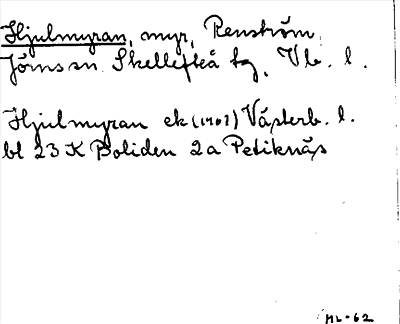 Hjulmyran, myr, Renström,
Jörns sn. Skellefteå tg. Vb. l.
Hjulmyran ek (1961) Västerb. l.
bl 23 K Boliden 2a Petiknäs